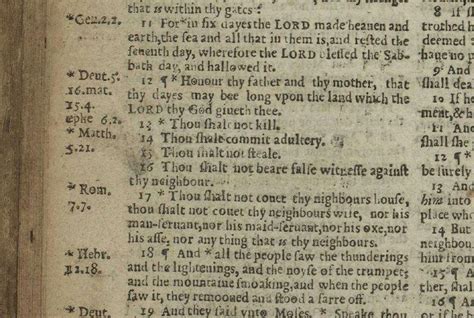 that is within thy gates:
* Gen.2,2.
11 For * in six dayes the LORD made heauen and
earth, the sea and all that in them is, and rested the
seuenth day, wherefore the LORD blessed the Sab-
bath day, and hallowed it.
* Deut.5.
16.mat.
15.4.
ephe 6.2.
12 ¶ * Honour thy father and thy mother, that
thy dayes may bee long vpon the land which the
LORD thy God giueth thee.
* Matth.
5.21.
13 * Thou shalt not kill.
14 Thou shalt commit adultery.
15 Thou shalt not steale.
16 Thou shalt not beare false witnesse against
thy neighbour.
* Rom.
7.7.
17 * Thou shalt not couet thy neighbours house,
thou shalt not couet thy neighbours wife, nor his
man-seruant, nor his maid-seruant, nor his oxe, nor
his asse, nor any thing that is thy neighbours.
* Hebr.
12.18.
18 ¶ And * all the people saw the thunderings
and the lightenings, and the noyse of the trumpet,
and the mountaine smoaking, and when the people
saw it, they remooued and stood a farre off.
* Deut.
19 And they said vnto Moses, * Speake thou
8 If
trothed h
deemed
haue no p
9 And
shall dea
10 If h
ment, &
shall she
12 ¶
be surely
13 And
him into
place whi
14 But
neighbour
him from
15 ¶ A
ther, shal
16 ¶ A